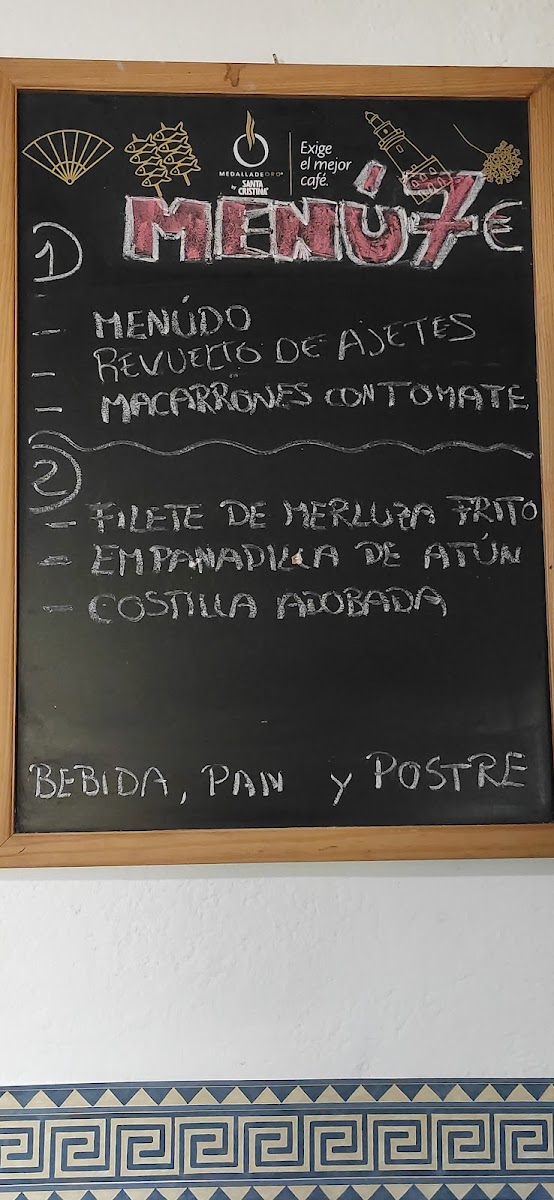 MEDALLADEORO®
by SANTA CRISTINA
Exige
el mejor
café.
MENÚ 7€
1)
- MENÚDO
- REVUELTO DE AJETES
- MACARRONES CON TOMATE
2)
- FILETE DE MERLUZA FRITO
- EMPANADILLA DE ATÚN
- COSTILLA ADOBADA
BEBIDA, PAN y POSTRE